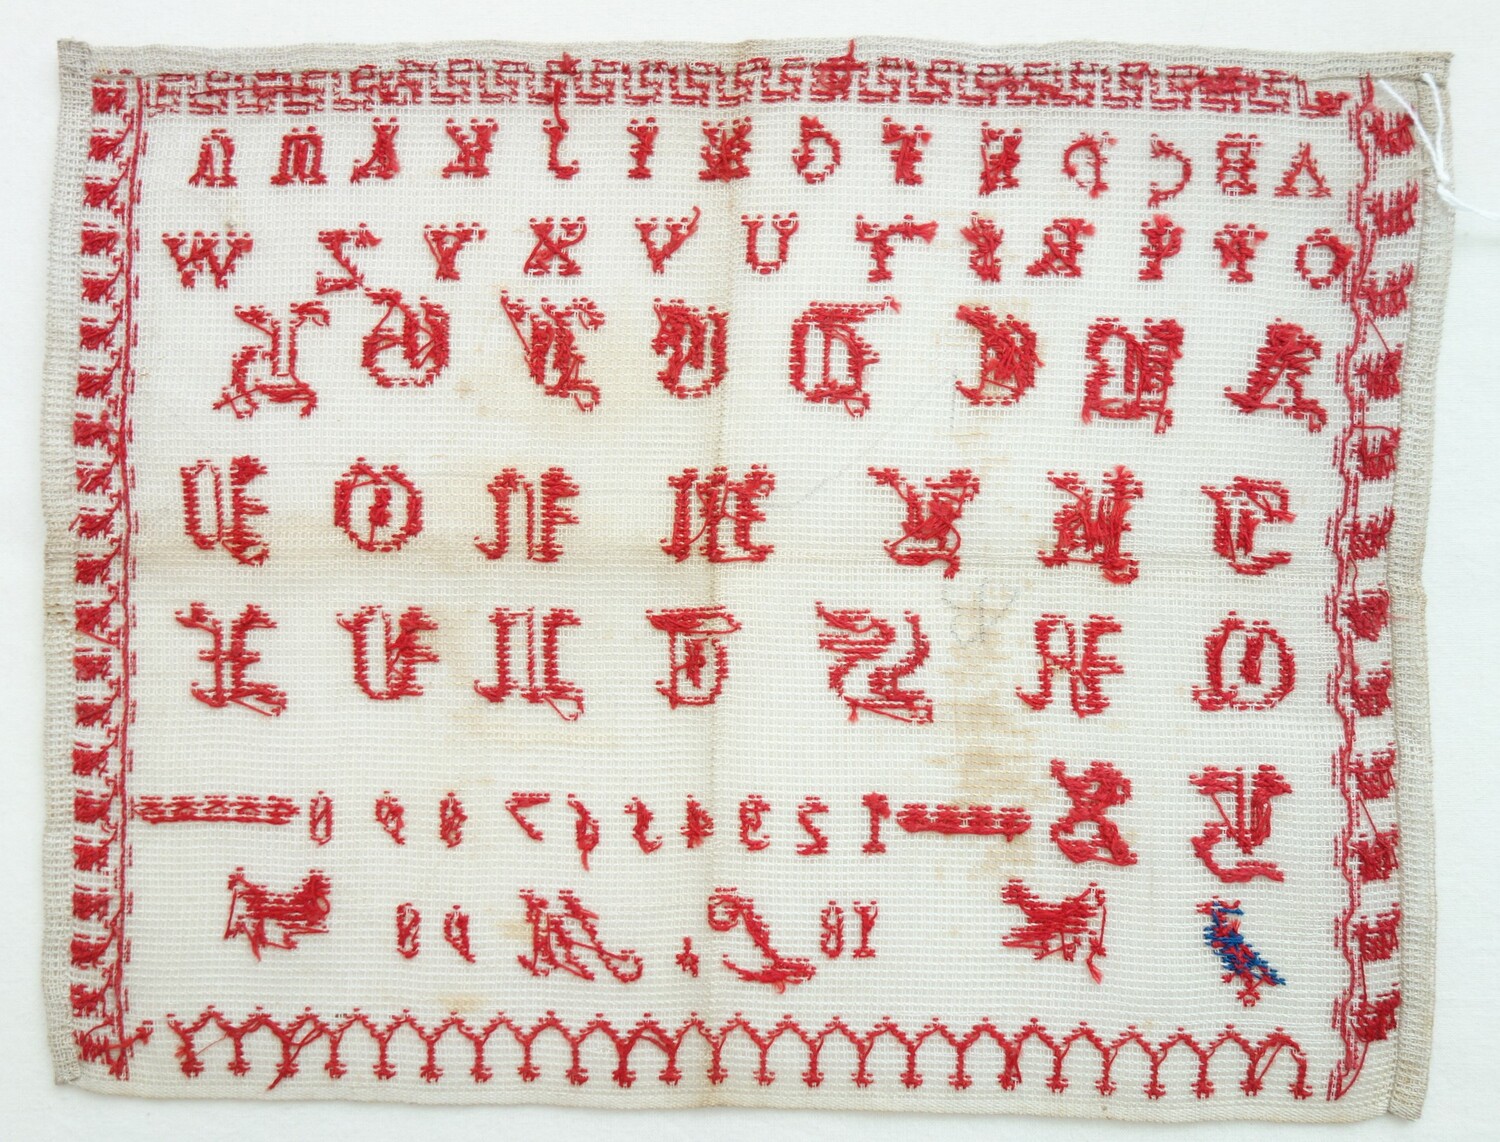 A B C D E F G H I J K L M N
O P Q R S T U V X Y Z W
A B C D E F G H
J K L M N O P
Q R S T U V X
Y Z 1 2 3 4 5 6 7 8 9 0
18